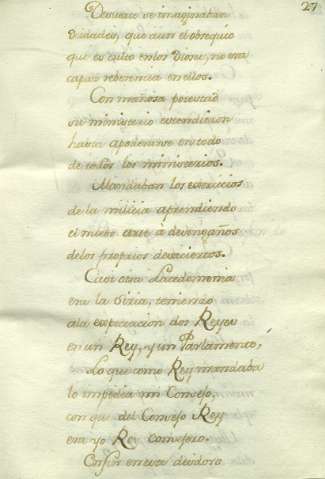 27
De suerte se imaginaban
Deidades, que aun el obsequio
que es culto en los Dioses, no era
capaz reberencia en ellos.
Con mañosa potestad
su ministerio estendieron
hasta apoderarse en todo
de todos los ministerios.
Mandaban los exercicios
de la milicia aprendiendo
el mismo arte à desengaños
de los proprios desaciertos.
Era otra Lacedemonia
en la Siria, teniendo
a la expectacion dos Reyes
en un Rey, y un Parlamento,
Lo que como Rey mandaba
lo impedia mi Consejo,
con que del Consejo Rey
era yo Rey consejero.
En fin era deudora